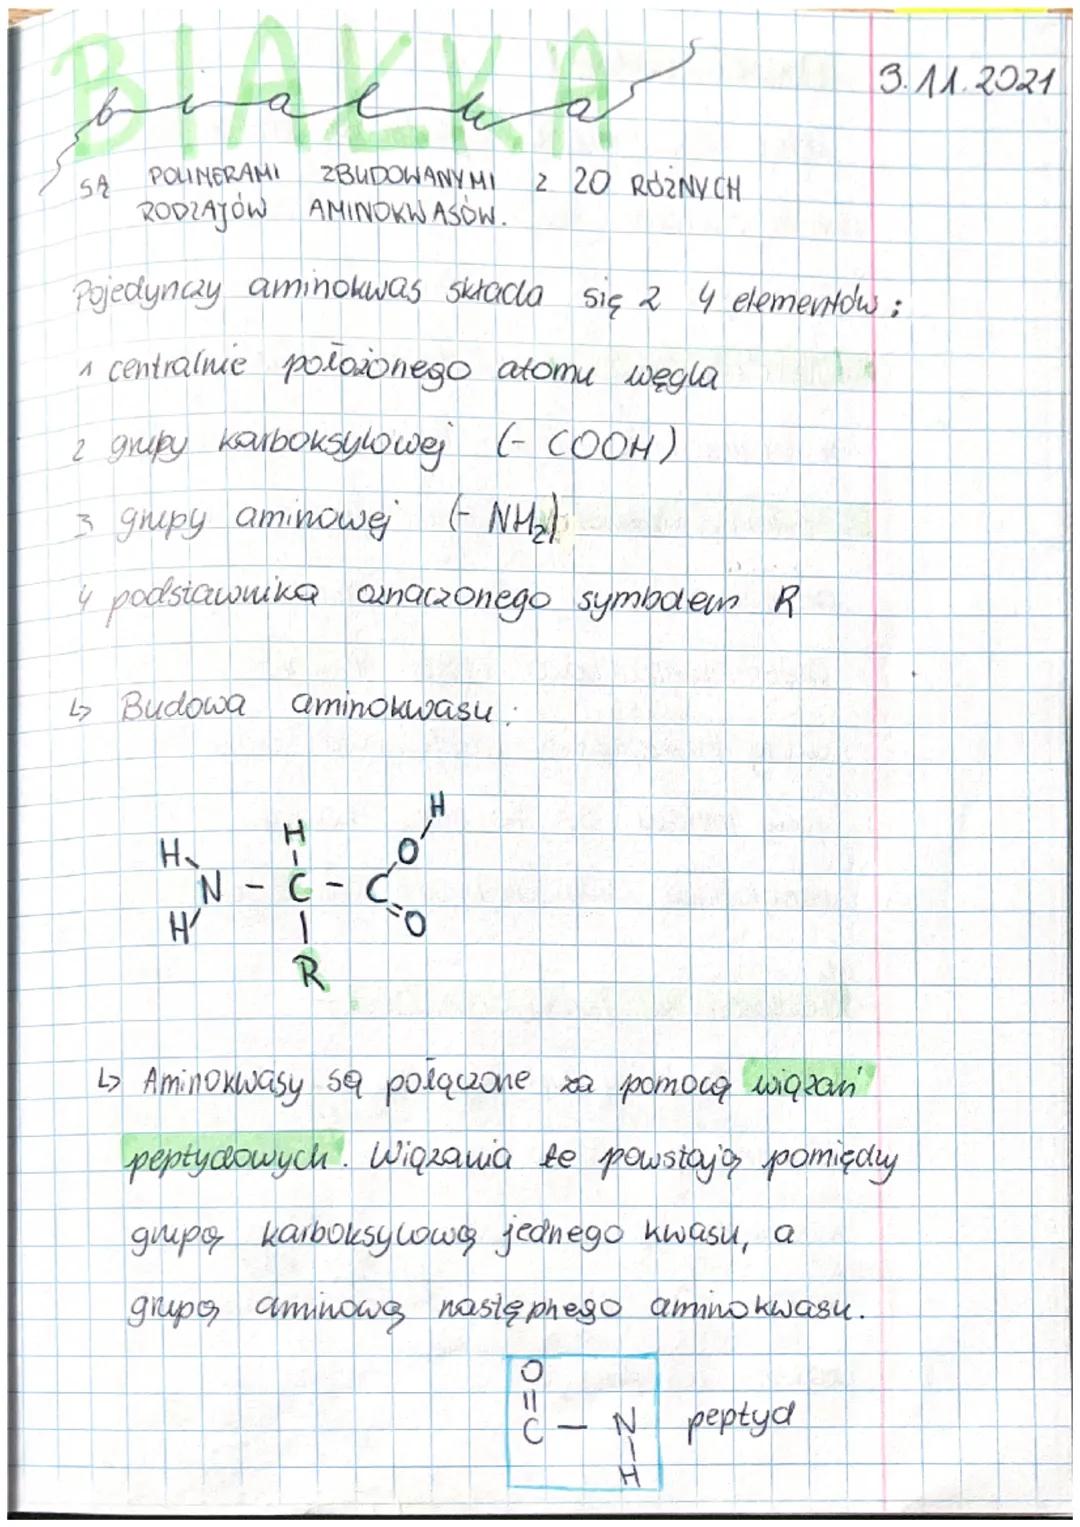 BIAŁKA
białka
3.11.2021
SĄ POLIMERAMI ZBUDOWANYMI Z 20 RÓŻNYCH
RODZAJÓW AMINOKWASÓW.
Pojedynczy aminokwas składa się z 4 elementów:
1 centralnie położonego atomu węgla
2 grupy karboksylowej (- COOH)
3 grupy aminowej (- NH₂)
4 podstawnika oznaczonego symbolem R
↳ Budowa aminokwasu:
H
H H O
N - C - C
H O
R
↳ Aminokwasy są połączone za pomocą wiązań
peptydowych. Wiązania te powstają pomiędzy
grupą karboksylową jednego kwasu, a
grupą aminową następnego aminokwasu.
O
=
C - N peptyd
H